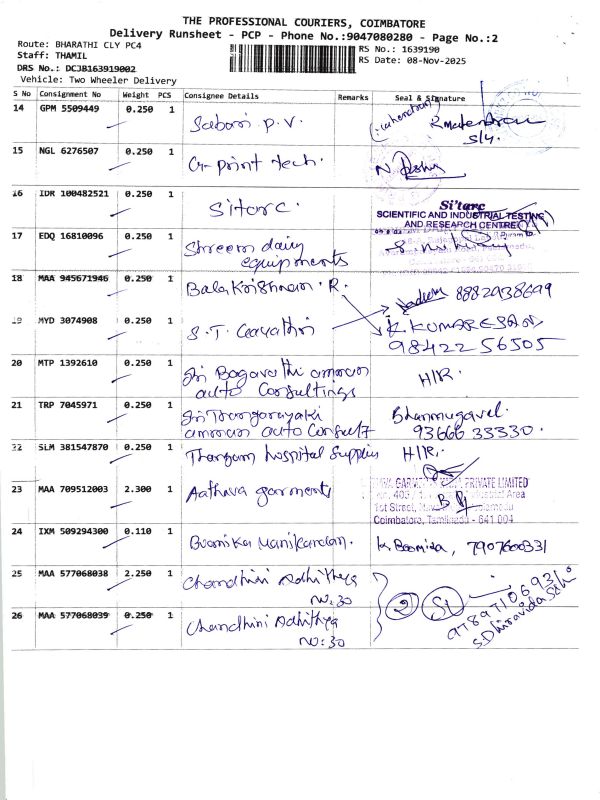 THE PROFESSIONAL COURIERS, COIMBATORE
Delivery Runsheet - PCP - Phone No.:9047080280 - Page No.:2
Route: BHARATHI CLY PC4
RS No.: 1639190
Staff: THAMIL
RS Date: 08-Nov-2025
DRS No.: DCJB163919002
Vehicle: Two Wheeler Delivery
S No Consignment No Weight PCS Consignee Details Remarks Seal & Signature
14 GPM 5509449 0.250 1 Sabari P.V.
15 NGL 6276507 0.250 1 G-Print tech.
16 IDR 100482521 0.250 1 Sitarc. Si'tarc
SCIENTIFIC AND INDUSTRIAL TESTING
AND RESEARCH CENTRE
17 EDQ 16810096 0.250 1 Shreem dairy
equipments
18 MAA 945671946 0.250 1 Balakrishnan. R. 8882938699
19 MYD 3074908 0.250 1 S.T. Gayathri K. KUMARESAN
98422 56505
20 MTP 1392610 0.250 1 Sri Bagavathi amman
auto Consultings H/R.
21 TRP 7045971 0.250 1 Sri Thanganayaki
amman auto Consult
Shanmugavel.
93666 33330.
22 SLM 381547870 0.250 1 Thangam hospital Supplies H/R.
23 MAA 709512003 2.300 1 Aathava garments PRIVATE LIMITED
Industrial Area
1st Street,
Coimbatore, Tamilnadu - 641 004
24 IXM 509294300 0.110 1 Boomika Manikandan. 7907600331
25 MAA 577068038 2.250 1 Chandhini Adhithya
NO:30
26 MAA 577068039 0.250 1 Chandhini Adhithya
NO:30
9789710693